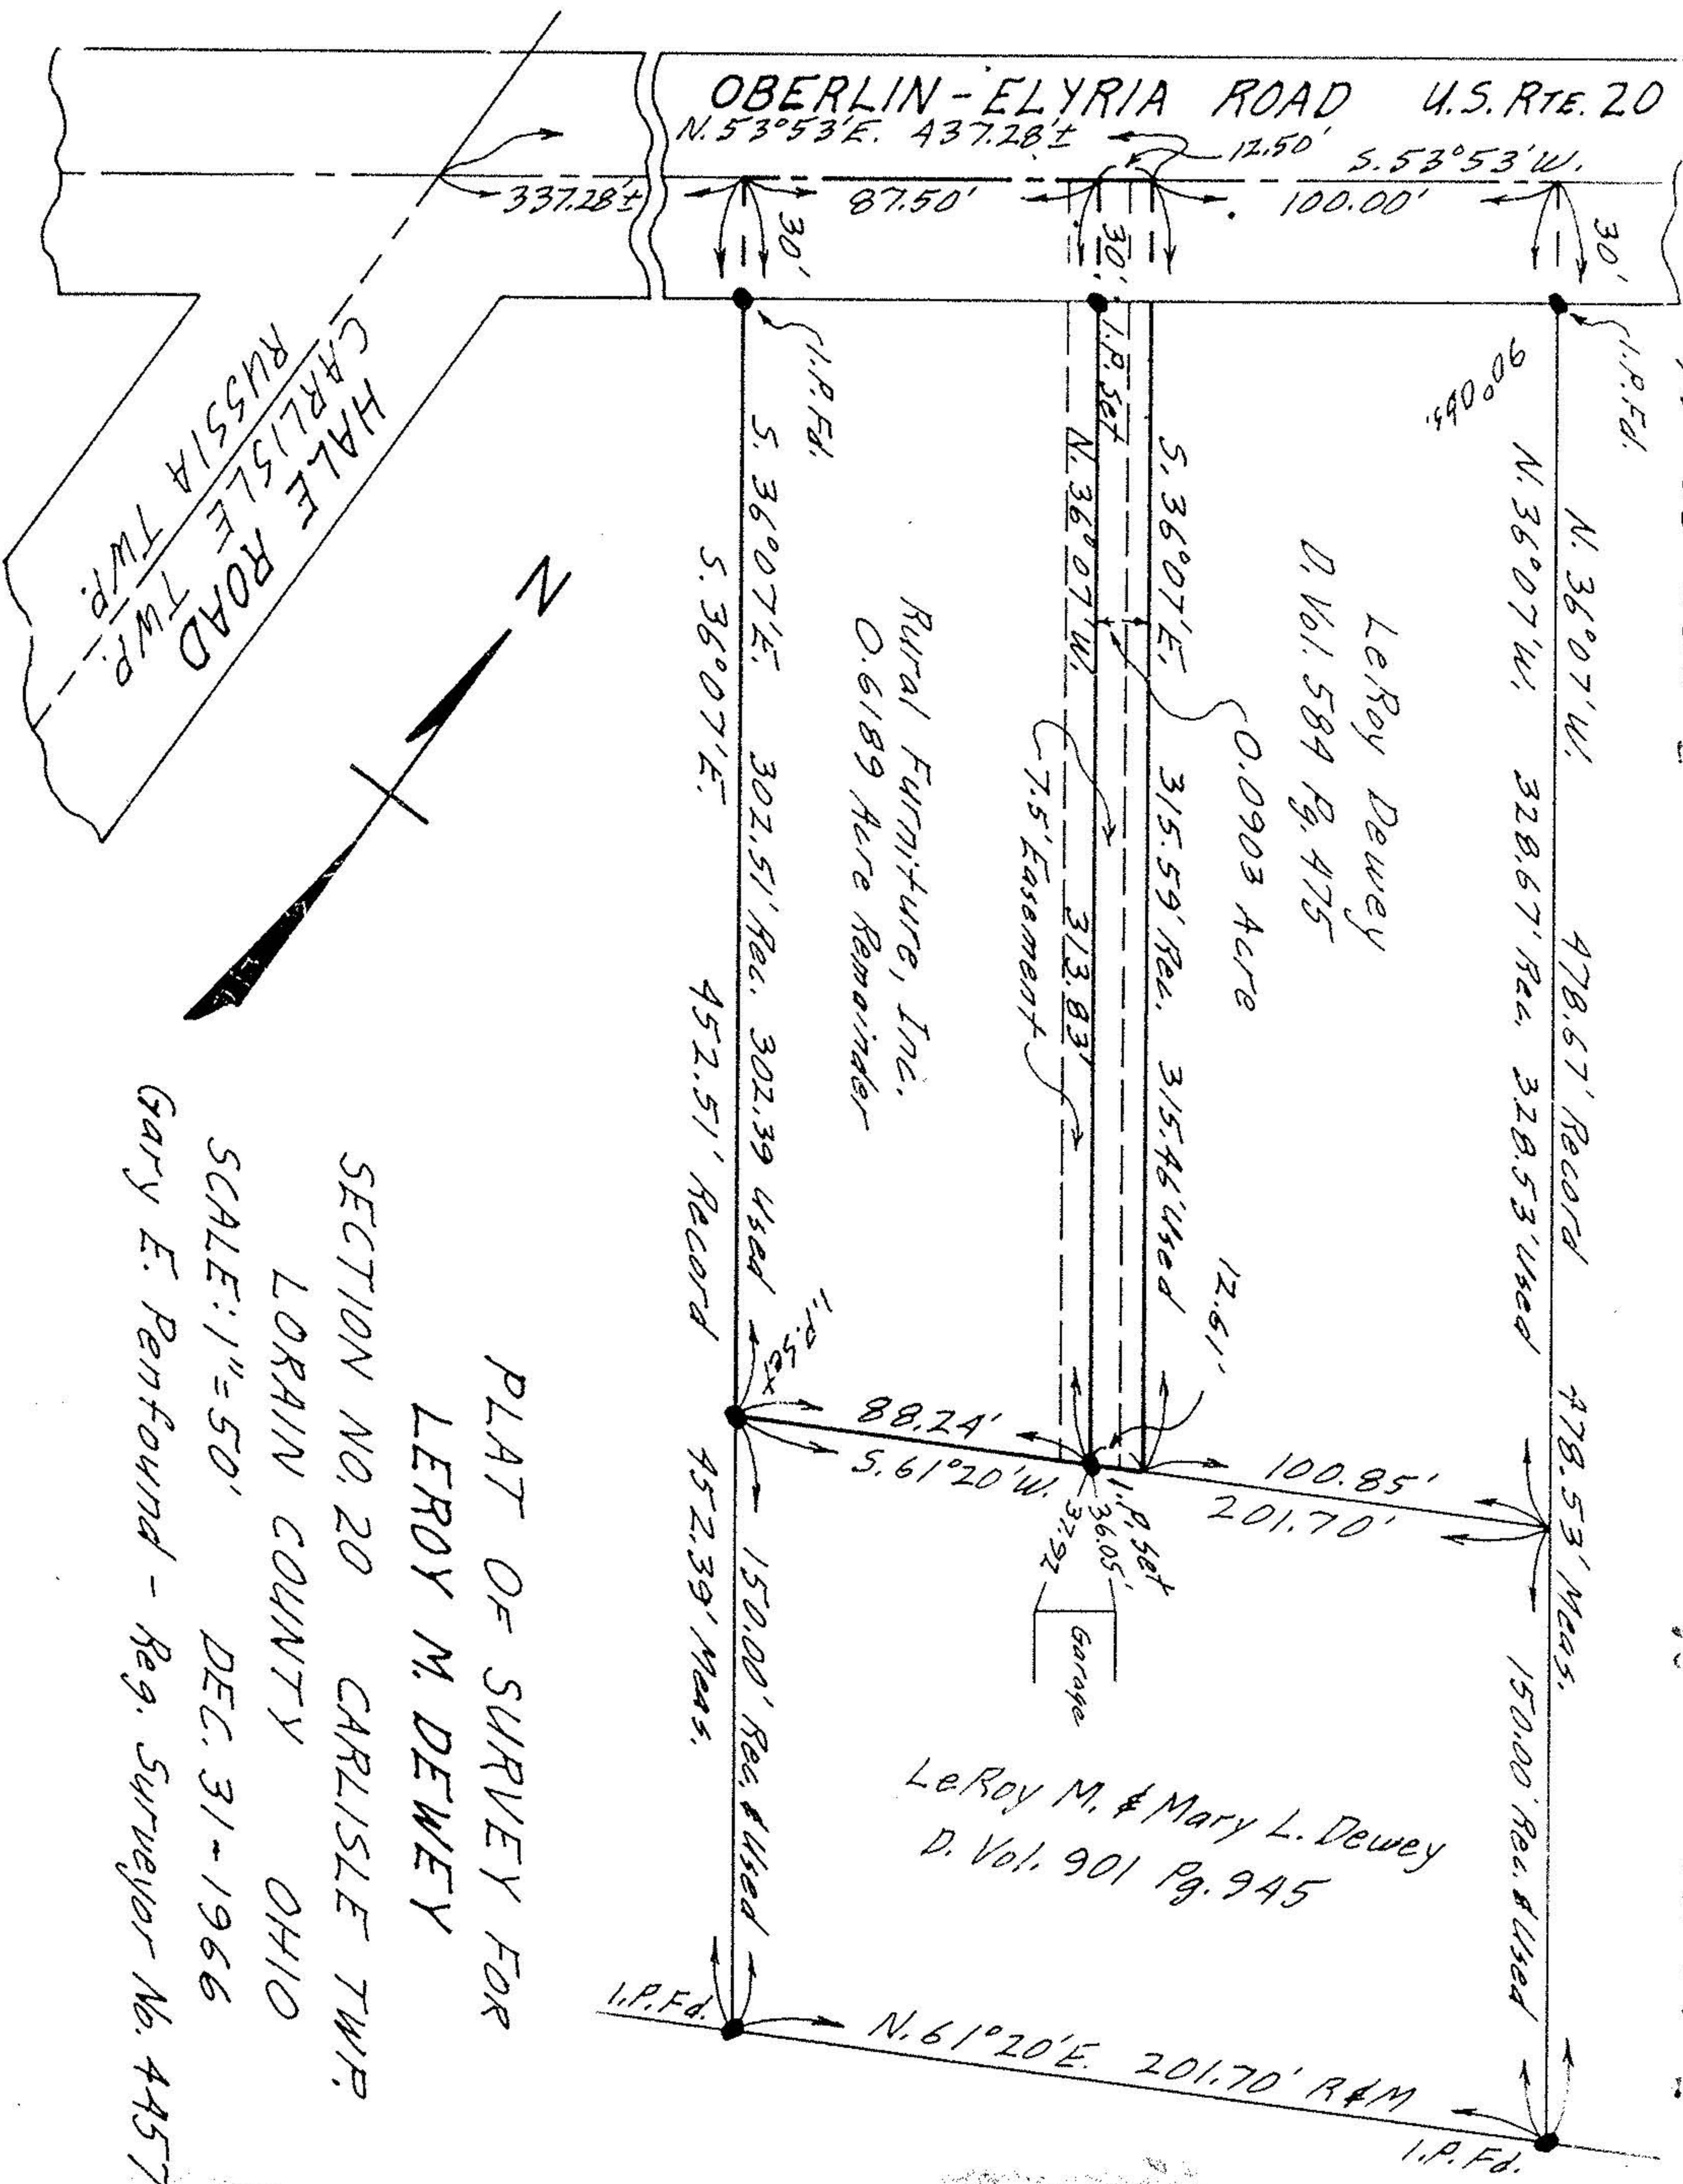 OBERLIN - ELYRIA ROAD U.S. RTE. 20
N. 53°53'E. 437.28'±
12.50'
S. 53°53'W.
337.28'±
87.50'
100.00'
30'
30'
30'
I.P. Fd.
I.P. Set
I.P. Fd.
90° Obs.
HALE ROAD
CARLISLE TWP.
RUSSIA TWP.
N
N. 36°07'W. 478.67' Record 478.53' Meas.
N. 36°07'W. 328.67' Rec. 328.53' Used
150.00' Rec. & Used
LeRoy Dewey
D. Vol. 584 Pg. 475
0.0903 Acre
S. 36°07'E. 315.59' Rec. 315.46' Used
N. 36°07'W. 313.83'
7.5' Easement
Rural Furniture, Inc.
0.6189 Acre Remainder
S. 36°07'E. 302.51' Rec. 302.39 Used
150.00' Rec. & Used
S. 36°07'E. 452.51' Record 452.39' Meas.
I.P. Set
12.61'
88.24'
S. 61°20'W.
100.85'
201.70'
I.P. Set
36.05'
37.92
Garage
LeRoy M. & Mary L. Dewey
D. Vol. 901 Pg. 945
I.P. Fd.
N. 61°20'E. 201.70' R&M
I.P. Fd.
PLAT OF SURVEY FOR
LEROY M. DEWEY
SECTION NO. 20 CARLISLE TWP.
LORAIN COUNTY OHIO
SCALE: 1"=50' DEC. 31-1966
Gary E. Penfound - Reg. Surveyor No. 4457